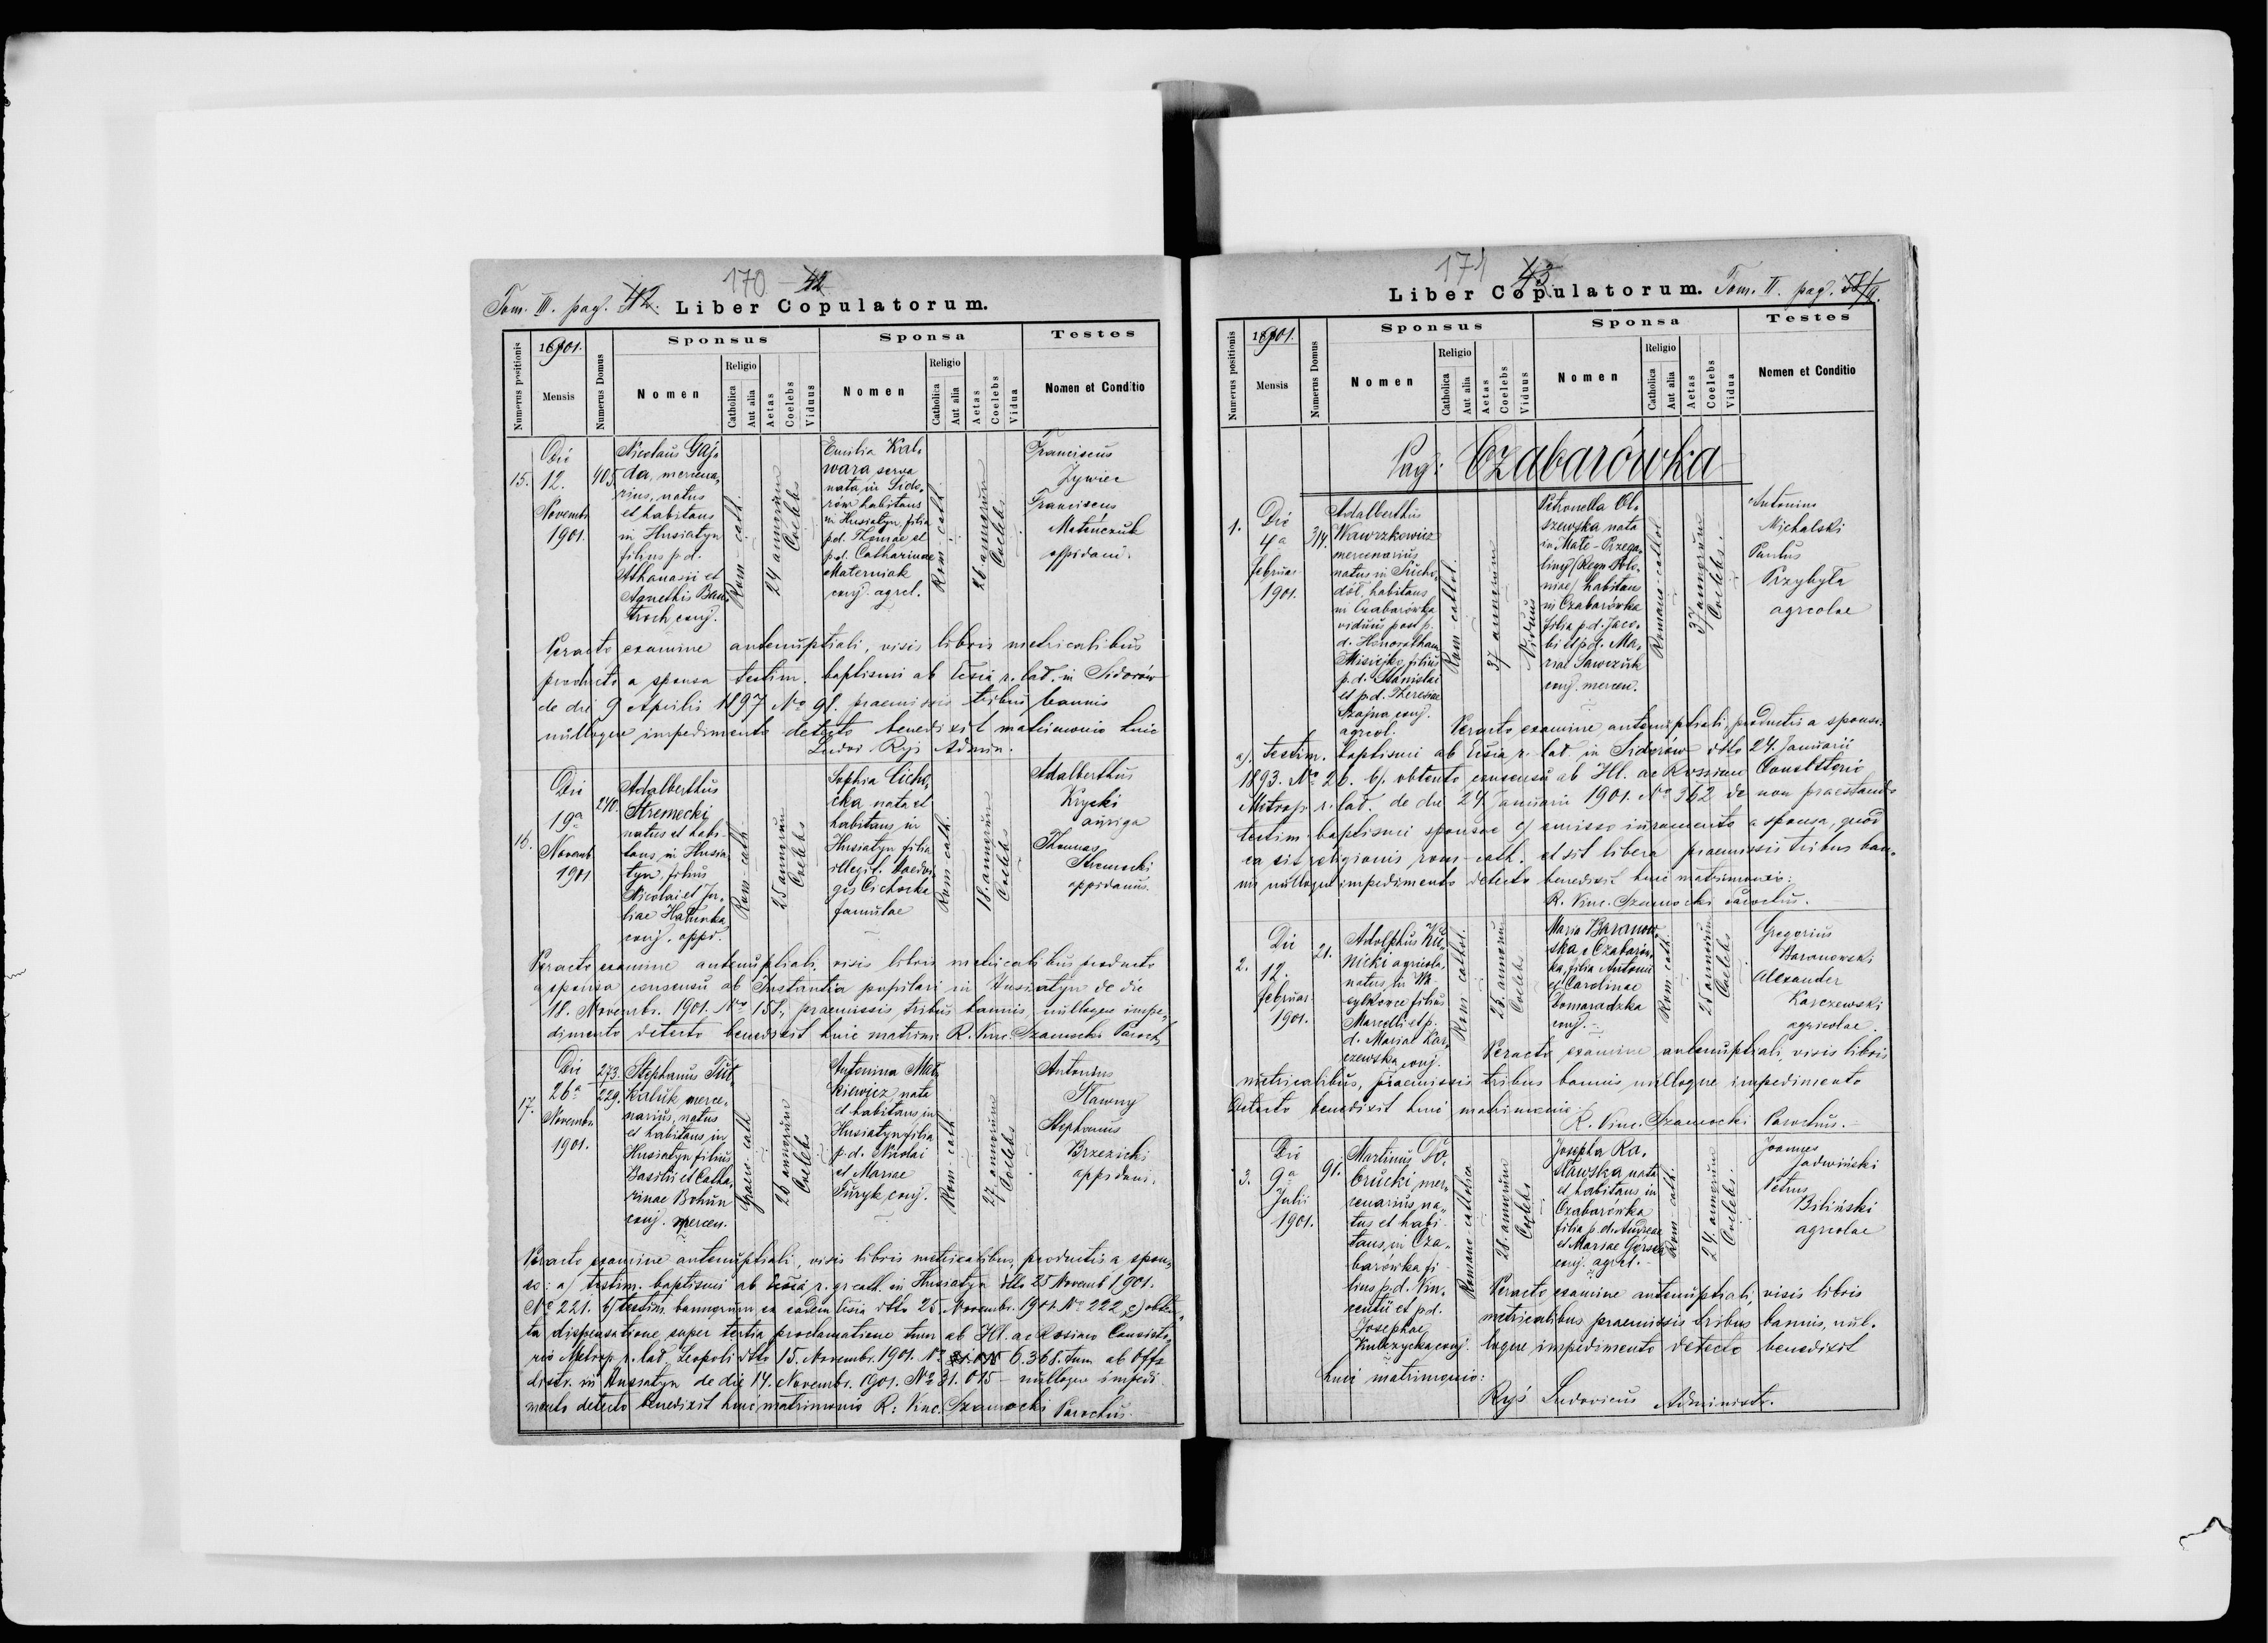 170 42
Tom. III. pag. 42. Liber Copulatorum.
Numerus positionis
1901.
Mensis
Numerus Domus
Sponsus
Nomen
Religio
Catholica
Aut alia
Aetas
Coelebs
Viduus
Sponsa
Nomen
Religio
Catholica
Aut alia
Aetas
Coelebs
Vidua
Testes
Nomen et Conditio
15.
Die
12.
Novembr.
1901.
405
Nicolaus Gáj-
da, mercena-
rius, natus
et habitans
in Husiatyn
filius p.d.
Athanasii et
Agnethis Ban-
troch conj.
Rom-cath.
24 annorum
Coelebs
Emilia Kal-
wara serva
nata in Sido-
rów habitans
in Husiatyn, filia
p.d. Thomae et
p.d. Catharinae
Materniak
conj. agrcl.
Rom-cath.
26 annorum
Coelebs
Franciscus
Zywiec
Franciscus
Matenczuk
oppidani.
Peracto examine antenuptiali, visis libris metricalibus
producto a sponsa testim. baptismi ab Ecsia r. lat. in Sidorów
de die 9 Aprilis 1897 No 91. praemissis tribus bannis
nulloque impedimento detecto benedixit matrimonio huic
Ludov. Ryś Admin.
16.
Die
19a
Novemb
1901
240.
Adalberthus
Stremecki
natus et habi-
tans in Husia-
tyn, filius
Nicolai et Ju-
liae Hałunka
conj. oppi.
Rom-cath.
25 annorum
Coelebs
Sophia Cicho-
cka nata et
habitans in
Husiatyn filia
illegit. Haedvi-
gis Cichocka
famulae
Rom-cath.
18. annorum
Coelebs
Adalberthus
Krycki
auriga
Thomas
Stremecki
oppidanus.
Peracto examine antenuptiali, visis libris metricalibus producto
a sponsa consensu ab Instantia pupilari in Husiatyn de die
18. Novembr. 1901. Nro 158., praemissis tribus bannis, nulloque impe-
dimento detecto benedixit huic matrim. R. Vinc. Szamocki Paroch
17.
Die
26a
Novembr.
1901.
273.
229.
Stephanus Tut-
Kaluk merce-
narius, natus
et habitans in
Husiatyn filius
Basilii et Catha-
rinae Bohun
conj. mercen.
Graeco-cath
26 annorum
Coelebs
Antonina Mac-
kiewicz nata
et habitans in
Husiatyn filia
p.d. Nicolai
et Mariae
Furyk conj.
Rom-cath
27. annorum
Coelebs
Antonius
Sławny
Stephanus
Brzezicki
oppidani.
Peracto examine antenuptiali, visis libris metricalibus, productis a spon-
so: a) testim. baptismi ab Ecsia r. gr cath. in Husiatyn dtto 25 Novemb 1901.
No 221. b) testim. bannorum ex eadem Ecsia dtto 25. Novembr. 1901 No 222, c) obten-
ta dispensatione super tertia proclamatione tum ab Ill. ac Rssimo Consisto-
rio Metrop r. lat Leopoli dtto 15. Novembr. 1901. No 6.368. tum ab Offo
distr. in Husiatyn de die 14. Novembr. 1901. No 31.015 - nulloque impedi-
mento detecto benedixit huic matrimonio R: Vinc. Szamocki Parochus.
171 43
Liber Copulatorum. Tom. II. pag.
Numerus positionis
1901.
Mensis
Numerus Domus
Sponsus
Nomen
Religio
Catholica
Aut alia
Aetas
Coelebs
Viduus
Sponsa
Nomen
Religio
Catholica
Aut alia
Aetas
Coelebs
Vidua
Testes
Nomen et Conditio
Pag: Czabarówka
1.
Die
4a
februar
1901.
314.
Adalberthus
Wawrzkowicz
mercenarius
natus in Sucho-
dół. habitans
in Czabarówka
viduus post p.
d. Honoratham
Misiejko, filius
p.d. Stanislai
et p.d. Theresiae
Szajna conj.
agrcol.
Rom-cathol.
37 annorum
Viduus
Petronella Ol-
szewska nata
in Małe-Przega-
liny (Regn Polo-
niae) habitans
in Czabarówka
filia p.d. Jaco-
bi et p.d. Ma-
riae Sawczuk
conj. mercen.
Romano-cathol
37 annorum
Coelebs.
Antonius
Michalski
Paulus
Przybyła
agrcolae
Peracto examine antenuptiali, productis a sponso:
a). testim. baptismi ab Ecsia r. lat in Sidorów dtto 24. Januarii
1893. No 26. b). obtento consensu ab Ill. ac Rssimo Consistorio
Metrop r. lat. de die 24 Januarii 1901. No 362 de non praestando
testim. baptismi sponsae c) emisso iuramento a sponsa, quod
ea sit religionis rom-cath. et sit libera praemissis tribus ban-
nis nulloque impedimento detecto benedixit huic matrimonio:
R. Vinc. Szamocki Parochus.
2.
Die
12.
februar
1901.
21.
Adolphus Ku-
nicki agricola,
natus in Wa-
sylkowce filius
Marcelli et p.
d. Mariae Kar-
czewska conj.
Rom cathol.
25. annorum
Coelebs
Maria Baranow-
ska e Czabarów-
ka, filia Antonii
et Carolinae
Domaradzka
conj.
Rom-cath.
25 annorum
Coelebs
Gregorius
Baranowski
Alexander
Karczewski
agricolae.
Peracto examine antenuptiali, visis libris
metricalibus, praemissis tribus bannis nulloque impedimento
detecto benedixit huic matrimonio:
R. Vinc. Szamocki Parochus.
3.
Die
9a
Julii
1901.
91.
Martinus Do-
brucki, mer-
cenarius, na-
tus et habi-
tans in Cza-
barówka fi-
lius p.d. Vin-
centii et p.d.
Josephae
Kulczycka conj.
Romano catholica
28. annorum
Coelebs
Josepha Ra-
sławska nata
et habitans in
Czabarówka
filia p.d. Andreae
et Mariae Gorska
conj. agrcl.
Rom-cath.
24. annorum
Coelebs.
Joannes
Jadwiński
Petrus
Biliński
agrcolae
Peracto examine antenuptiali, visis libris
metricalibus praemissis tribus bannis, nul-
loque impedimento detecto benedixit
huic matrimonio:
Ryś Ludovicus Administr.